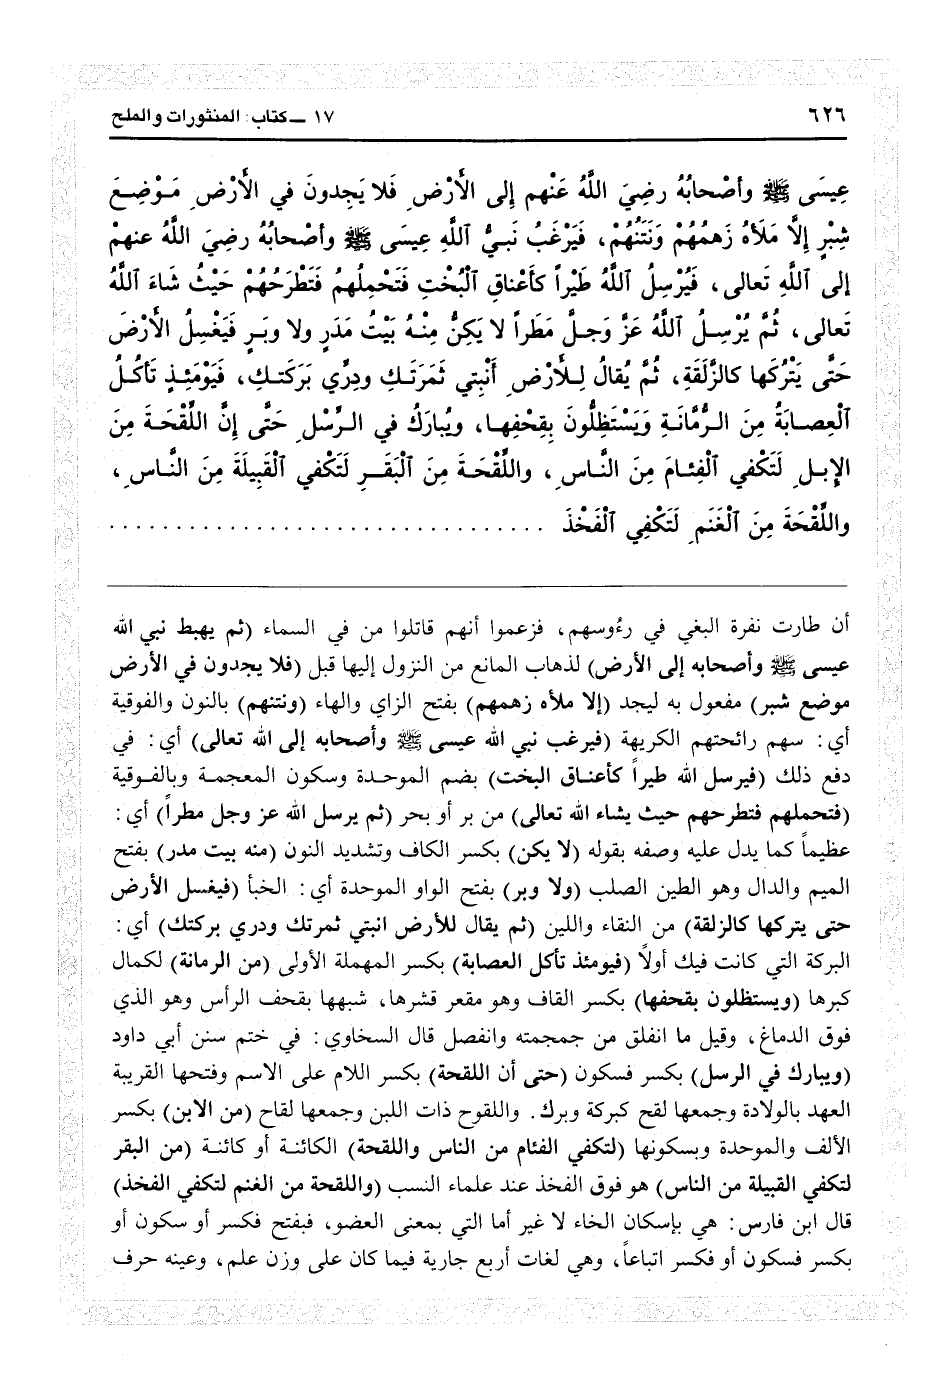 ٦٢٦
١٧ ــ كتاب: المنثورات والملح
عِيسَى ﷺ وأصْحابُهُ رضِيَ اللَّهُ عَنْهم إلى الأَرْضِ فَلا يَجِدونَ في الأَرْضِ مَوْضِعَ
شِبْرٍ إلَّا مَلَأهُ زَهمُهُمْ وَنَتَنُهُمْ، فَيَرْغَبُ نَبيُّ اللَّهِ عِيسَى ﷺ وأصْحابُهُ رضِيَ اللَّهُ عنهمْ
إلى اللَّهِ تَعالى، فَيُرْسِلُ اللَّهُ طَيْراً كأعْناقِ الْبُخْتِ فَتَحْمِلُهمْ فَتَطْرَحُهُمْ حَيْثُ شَاءَ اللَّهُ
تَعالى، ثُمَّ يُرْسِلُ اللَّهُ عَزَّ وَجلَّ مَطَراً لا يَكِنُّ مِنْهُ بَيْتُ مَدَرٍ ولا وبَرٍ فَيَغْسِلُ الأَرْضَ
حَتَّى يَتْرُكَها كالزَّلَقَةِ، ثُمَّ يُقالُ لِلأَرْضِ أَنْبِتي ثَمرَتَكِ ودِرِّي بَرَكَتكِ، فَيَوْمَئِذٍ تَأكُلُ
الْعِصابَةُ مِنَ الرُّمَّانَةِ وَيَسْتَظِلُّونَ بِقِحْفِها، ويُبارَكُ في الرِّسْلِ حَتَّى إنَّ اللِّقْحَةَ مِنَ
الإبلِ لَتَكْفي الْفِئامَ مِنَ النَّاسِ، واللِّقْحَةَ مِنَ الْبَقَرِ لَتَكفي الْقَبيلَةَ مِنَ النَّاسِ،
واللِّقْحَةَ مِنَ الْغَنَمِ لَتَكْفِي الْفَخْذَ ................................
أن طارت نفرة البغي في رءُوسهم، فزعموا أنهم قاتلوا من في السماء (ثم يهبط نبي الله
عيسى ﷺ وأصحابه إلى الأرض) لذهاب المانع من النزول إليها قبل (فلا يجدون في الأرض
موضع شبر) مفعول به ليجد (إلا ملأه زهمهم) بفتح الزاي والهاء (ونتنهم) بالنون والفوقية
أي: سهم رائحتهم الكريهة (فيرغب نبي الله عيسى ﷺ وأصحابه إلى الله تعالى) أي: في
دفع ذلك (فيرسل الله طيراً كأعناق البخت) بضم الموحدة وسكون المعجمة وبالفوقية
(فتحملهم فتطرحهم حيث يشاء الله تعالى) من بر أو بحر (ثم يرسل الله عز وجل مطراً) أي:
عظيماً كما يدل عليه وصفه بقوله (لا يكن) بكسر الكاف وتشديد النون (منه بيت مدر) بفتح
الميم والدال وهو الطين الصلب (ولا وبر) بفتح الواو الموحدة أي: الخبأ (فيغسل الأرض
حتى يتركها كالزلقة) من النقاء واللين (ثم يقال للأرض انبتي ثمرتك ودري بركتك) أي:
البركة التي كانت فيك أولاً (فيومئذ تأكل العصابة) بكسر المهملة الأولى (من الرمانة) لكمال
كبرها (ويستظلون بقحفها) بكسر القاف وهو مقعر قشرها، شبهها بقحف الرأس وهو الذي
فوق الدماغ، وقيل ما انفلق من جمجمته وانفصل قال السخاوي: في ختم سنن أبي داود
(ويبارك في الرسل) بكسر فسكون (حتى أن اللقحة) بكسر اللام على الاسم وفتحها القريبة
العهد بالولادة وجمعها لقح كبركة وبرك. واللقوح ذات اللبن وجمعها لقاح (من الابن) بكسر
الألف والموحدة وبسكونها (لتكفي الفئام من الناس واللقحة) الكائنة أو كائنة (من البقر
لتكفي القبيلة من الناس) هو فوق الفخذ عند علماء النسب (واللقحة من الغنم لتكفي الفخذ)
قال ابن فارس: هي بإسكان الخاء لا غير أما التي بمعنى العضو، فبفتح فكسر أو سكون أو
بكسر فسكون أو فكسر اتباعاً، وهي لغات أربع جارية فيما كان على وزن علم، وعينه حرف